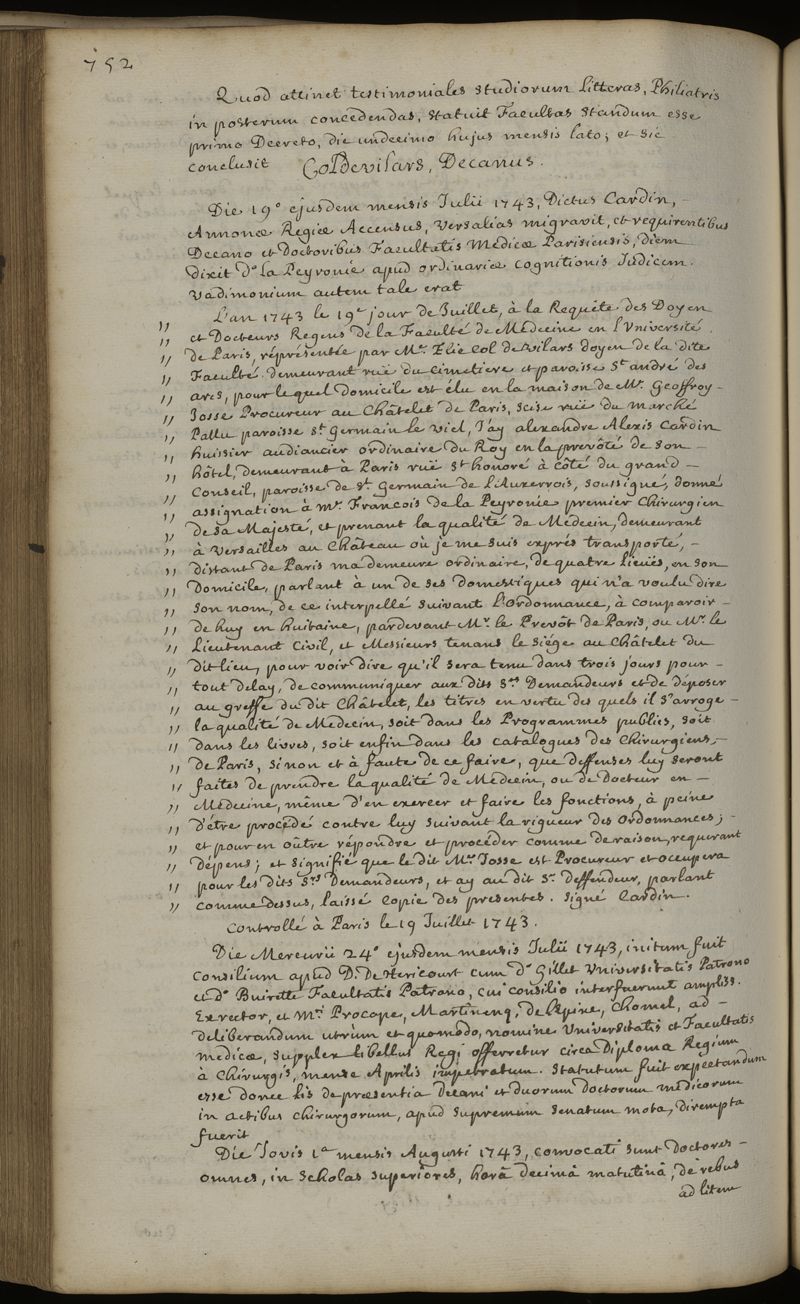 752
Quod attinet testimoniales studiorum Litteras, Philiatris
in posterum concedendas, statuit Facultas standum esse
primo Decreto, die undecimo hujus mensis lato; et sic
conclusit Col De vilars, Decanus.
Die 19ª ejusdem mensis Julii 1743, Dictus Cardin, –
Annonæ Regiæ Accensus, Versalias migravit, et requirentibus
Decano et Doctoribus Facultatis Medicæ Parisiensis, diem
dixit Dº La Peyronie apud ordinariæ cognitionis Judicem.
Vadimonium autem tale erat
" L'an 1743 le 19e jour de Juillet, à la Requête des Doyen
" et Docteurs Regens de la Faculté de Médecine en l'Université
" de Paris, réprésentée par Mr. Elie Col de Vilars doyen de la dite
" Faculté demeurant ruë du Cimetiere et paroisse St andré des
" arcs, pour lequel domicile est élu en la maison de Mr. Geoffroy –
" Josse Procureur au Châtelet de Paris, scise ruë du marché
" Pallu paroisse St. Germain le viel, J'ay alexandre Alexis Cardin
" huissier audiancier ordinaire du Roy en la prevôté de son –
" hôtel, demeurant à Paris ruë St honoré à côté du grand –
" Conseil, paroisse de St. Germain de L'Auxerrois, soussigné, donné
" assignation à Mr. Francois de la Peyronie premier Chirurgien
" de sa Majesté, et prenant la qualité de Médecin, demeurant
" à Versailles au Château où je me suis exprés transporté, –
" distant de Paris ma demeure ordinaire, de quatre Lieuës, en son
" Domicile, parlant à un de ses domestiques qui n'a voulu dire
" son nom, de ce interpellé suivant L'ordonnance, à comparoir –
" de huy en huitaine, pardevant Mr. le Prevôt de Paris, ou Mr. le
" Lieutenant Civil, et Messieurs tenans le siége au Châtelet du
" dit lieu, pour voir dire qu'il sera tenu dans trois jours pour –
" tout delay, de communiquer aux dits Srs Demandeurs et de déposer
" au greffe du dit Châtelet, les titres en vertu des quels il s'arroge –
" la qualité de Medecin, soit dans les Programmes publics, soit
" dans les livres, soit enfin dans les catalogues des Chirurgiens –
" de Paris, sinon et à faute de ce faire, que deffenses luy seront
" faites de prendre la qualité de Médecin, ou de Docteur en –
" Médecine, même d'en exercer et faire les fonctions, à peine
" d'être procédé contre luy suivant la rigueur des ordonnances; –
" et pour en oûtre répondre et procéder comme de raison, requerant
" dépens; et signifié que le dit Mr. Josse est Procureur et occupera
" pour les dits Srs Demandeurs, et ay au dit Sr. deffendeur, parlant
" comme dessus, laissé copie des presentes. Signé Cardin.
Controllé à Paris le 19 Juillet 1743.
Die Mercurii 24ª ejusdem mensis Julii 1743, initum fuit
Consilium apud D. De Hericourt cum Dº Gillet Universitatis Patrono
et Dº Buirette Facultatis Patrono, cui consilio interfuerunt ampliss.
Exrector, et Mri Procope, Martinenq, De Lépine, Chomel, ad –
deliberandum utrùm et quomodo, nomine Universitatis et Facultatis
medicæ, supplex libellus Regi offerretur circa Diploma Regium
à Chirurgis, mense Aprilis impetratum. Statutum fuit expectandum
esse donec lis de præsentia Decani et duorum doctorum medicorum
in actibus chirurgorum, apud supremum Senatum mota, dirempta
fuerit
Die Jovis 1ª mensis Augusti 1743, convocati sunt Doctores –
omnes, in scholas superiores, horâ decimâ matutinâ, de rebus
ad litem